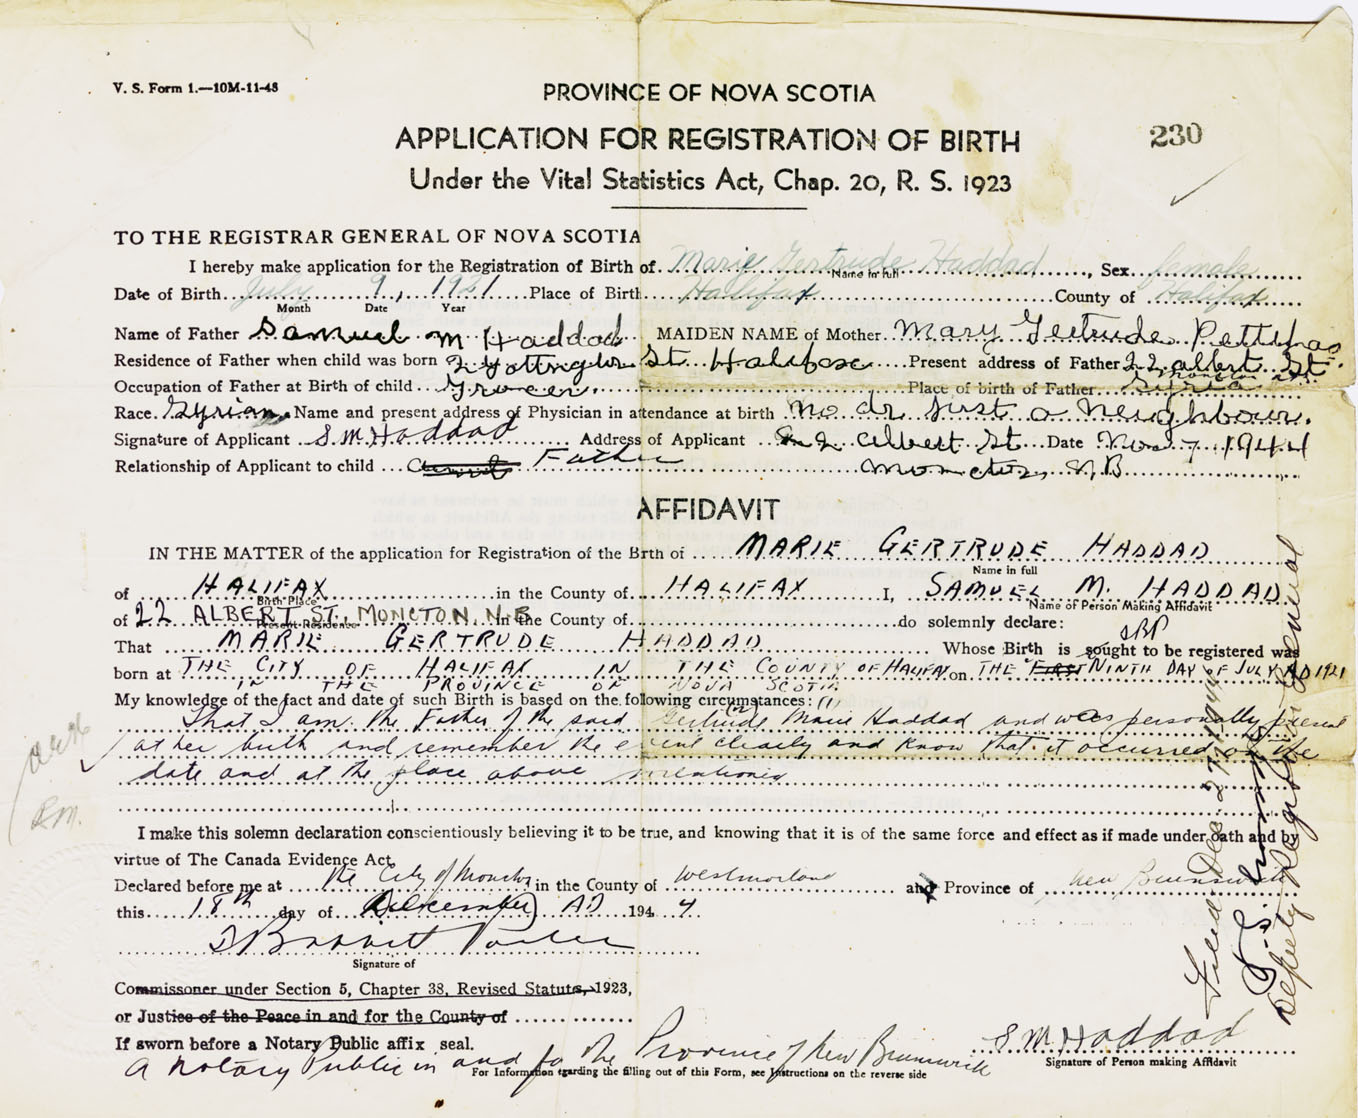 V. S. Form 1.—10M-11-43
PROVINCE OF NOVA SCOTIA
APPLICATION FOR REGISTRATION OF BIRTH
230
Under the Vital Statistics Act, Chap. 20, R. S. 1923
TO THE REGISTRAR GENERAL OF NOVA SCOTIA
I hereby make application for the Registration of Birth of Marie Gertrude Haddad, Sex female
Name in full
Date of Birth July 9, 1921 Place of Birth Halifax County of Halifax
Month Date Year
Name of Father Samuel M Haddad MAIDEN NAME of Mother Mary Gertrude Pettipas
Residence of Father when child was born 2 Gottingen St Halifax Present address of Father 22 albert St.
Moncton N.B.
Occupation of Father at Birth of child Grocer. Place of birth of Father Syria
Race Syrian Name and present address of Physician in attendance at birth No dr just a neighbour.
Signature of Applicant S.M. Haddad Address of Applicant 22 albert St Date Nov 7 1944
Relationship of Applicant to child Father Moncton, N,B
AFFIDAVIT
IN THE MATTER of the application for Registration of the Brth of MARIE GERTRUDE HADDAD
Name in full
of HALIFAX in the County of HALIFAX I, SAMUEL M. HADDAD
Birth Place Name of Person Making Affidavit
of 22 ALBERT ST., MONCTON N.B in the County of do solemnly declare:
Present Residence
That MARIE GERTRUDE HADDAD Whose Birth is sought to be registered was
born at THE CITY OF HALIFAX IN THE COUNTY OF HALIFAX on THE FIRST NINTH DAY OF JULY AD 1921
IN THE PROVINCE OF NOVA SCOTIA
My knowledge of the fact and date of such Birth is based on the following circumstances: (1)
That I am the Father of the said Gertrude Marie Haddad and was personally present
at her birth and remember the event clearly and know that it occurred on the
date and at the place above mentioned
I make this solemn declaration conscientiously believing it to be true, and knowing that it is of the same force and effect as if made under oath and by
virtue of The Canada Evidence Act.
Declared before me at the City of Moncton in the County of Westmorland and Province of New Brunswick
this 18th day of December AD 1944
Signature of
Commissoner under Section 5, Chapter 38, Revised Statuts, 1923,
or Justice of the Peace in and for the County of
If sworn before a Notary Public affix seal.
A Notary Public in and for the Province of New Brunswick
S M Haddad
Signature of Person making Affidavit
For Information egarding the filling out of this Form, see Instructions on the reverse side
Filed Dec. 27, 1944
Deputy Registrar General